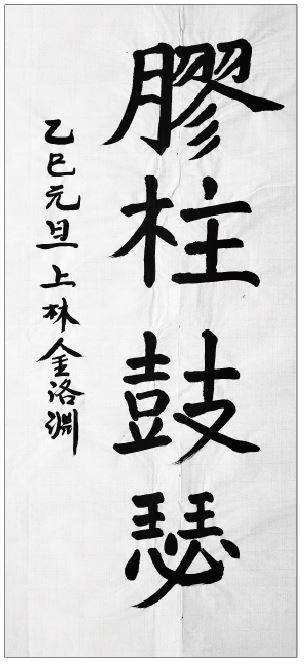 膠柱鼓瑟
乙巳元旦 上林 金洛淵